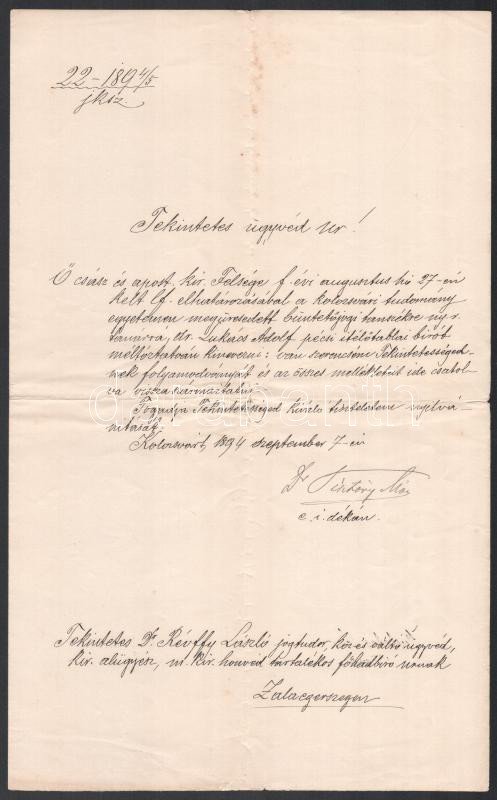 22-1894/5
jksz.
Tekintetes ügyvéd Ur!
Ő csász és apost. kir. Felsége f. évi augusztus hó 27-én
kelt lf. elhatározásával a kolozsvári tudomány
egyetemen megüresedett büntetőjogi tanszékre ny. r.
tanárrá, dr. Lukács Adolf pécsi itélőtáblai birót
méltóztatván kinevezni: van szerencsém Tekintetességed-
nek folyamodványát és az összes mellékleteit ide csatol-
va visszaszármaztatni.
Fogadja Tekintetességed kiváló tiszteletem nyilvá-
nitását.
Kolozsvárt, 1894 szeptember 7-én
Dr
e. i. dékán.
Tekintetes Dr. Révffy László jogtudor, köz és váltó ügyvéd,
kir. alügyész, m. kir. honvéd tartalékos főhadbiró urnak
Zalaegerszegen